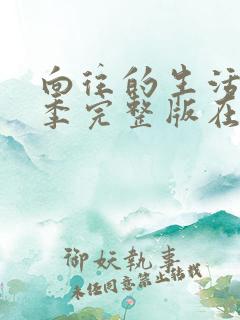 向往的生活
季完整版在
御妖執事
未经同意禁止转载